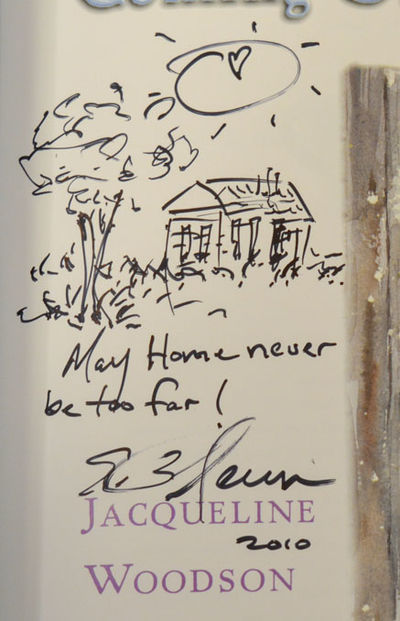 May Home never
be too far!
E.B. Lewis
JACQUELINE
2010
WOODSON